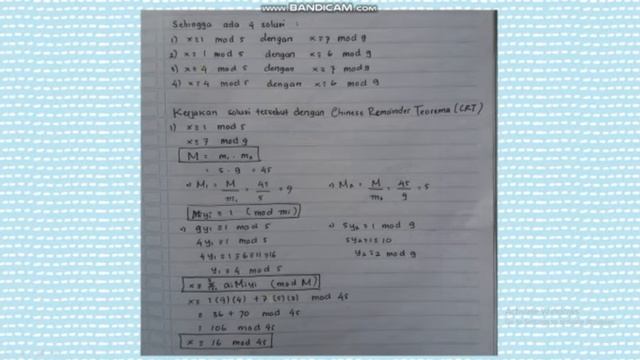 www.BANDICAM.com
Sehingga ada 4 solusi :
1) x ≡ 1 mod 5 dengan x ≡ 7 mod 9
2) x ≡ 1 mod 5 dengan x ≡ 6 mod 9
3) x ≡ 4 mod 5 dengan x ≡ 7 mod 9
4) x ≡ 4 mod 5 dengan x ≡ 6 mod 9
Kerjakan solusi tersebut dengan Chinese Remainder Teorema (CRT)
1) x ≡ 1 mod 5
x ≡ 7 mod 9
M = m₁ . m₂
= 5 . 9 = 45
⇒ M₁ = M/m₁ = 45/5 = 9
⇒ M₂ = M/m₂ = 45/9 = 5
Miyi ≡ 1 (mod mi)
⇒ 9y₁ ≡ 1 mod 5
4y₁ ≡ 1 mod 5
4y₁ ≡ 1 ≡ 6 ≡ 11 ≡ 16
y₁ ≡ 4 mod 5
⇒ 5y₂ ≡ 1 mod 9
5y₂ ≡ 1 ≡ 10
y₂ ≡ 2 mod 9
aiMiyi (mod M)
x ≡ 1(9)(4) + 7(5)(2) mod 45
≡ 36 + 70 mod 45
≡ 106 mod 45
x ≡ 16 mod 45